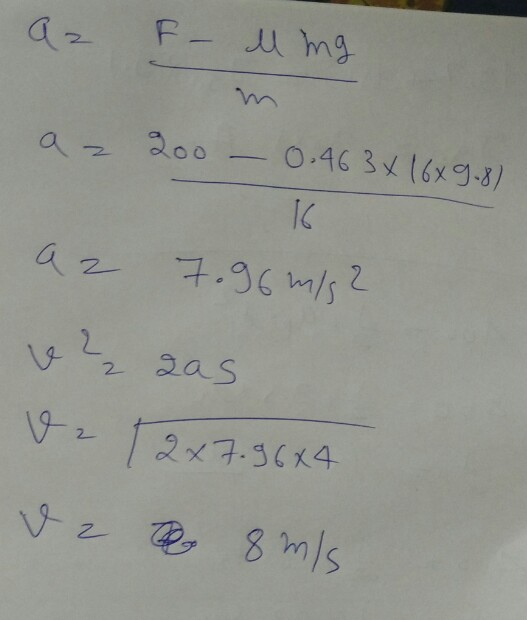 a = F - μ mg
m
a = 200 - 0.463 x 16 x 9.8)
16
a = 7.96 m/s 2
v 2 = 2as
v = √2x7.96x4
v = 8 m/s